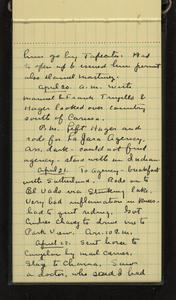 him go by Tapeates. Had
to fix up & issued him permit
also Manuel Martinez.
April 20. A.M. With
Manuel & Frank Trujillo &
Hager looked over country
south of Carma.
P.M. Left Hager and
rode for La Jara Agency,
Arr. dark. Could not find
agency - slept with an Indian.
April 21. To Agency - breakfast
with Sutherland. Rode on to
El Vado via Stinking Lake.
Very bad inflammation in knees.
had to quit riding. Got
Andres Chavez to drive me to
Park View. Arr. 10 P.M.
April 22. Sent horse to
Canjilon by mail carrier.
Stag to Chama. Saw
a doctor, who said I had